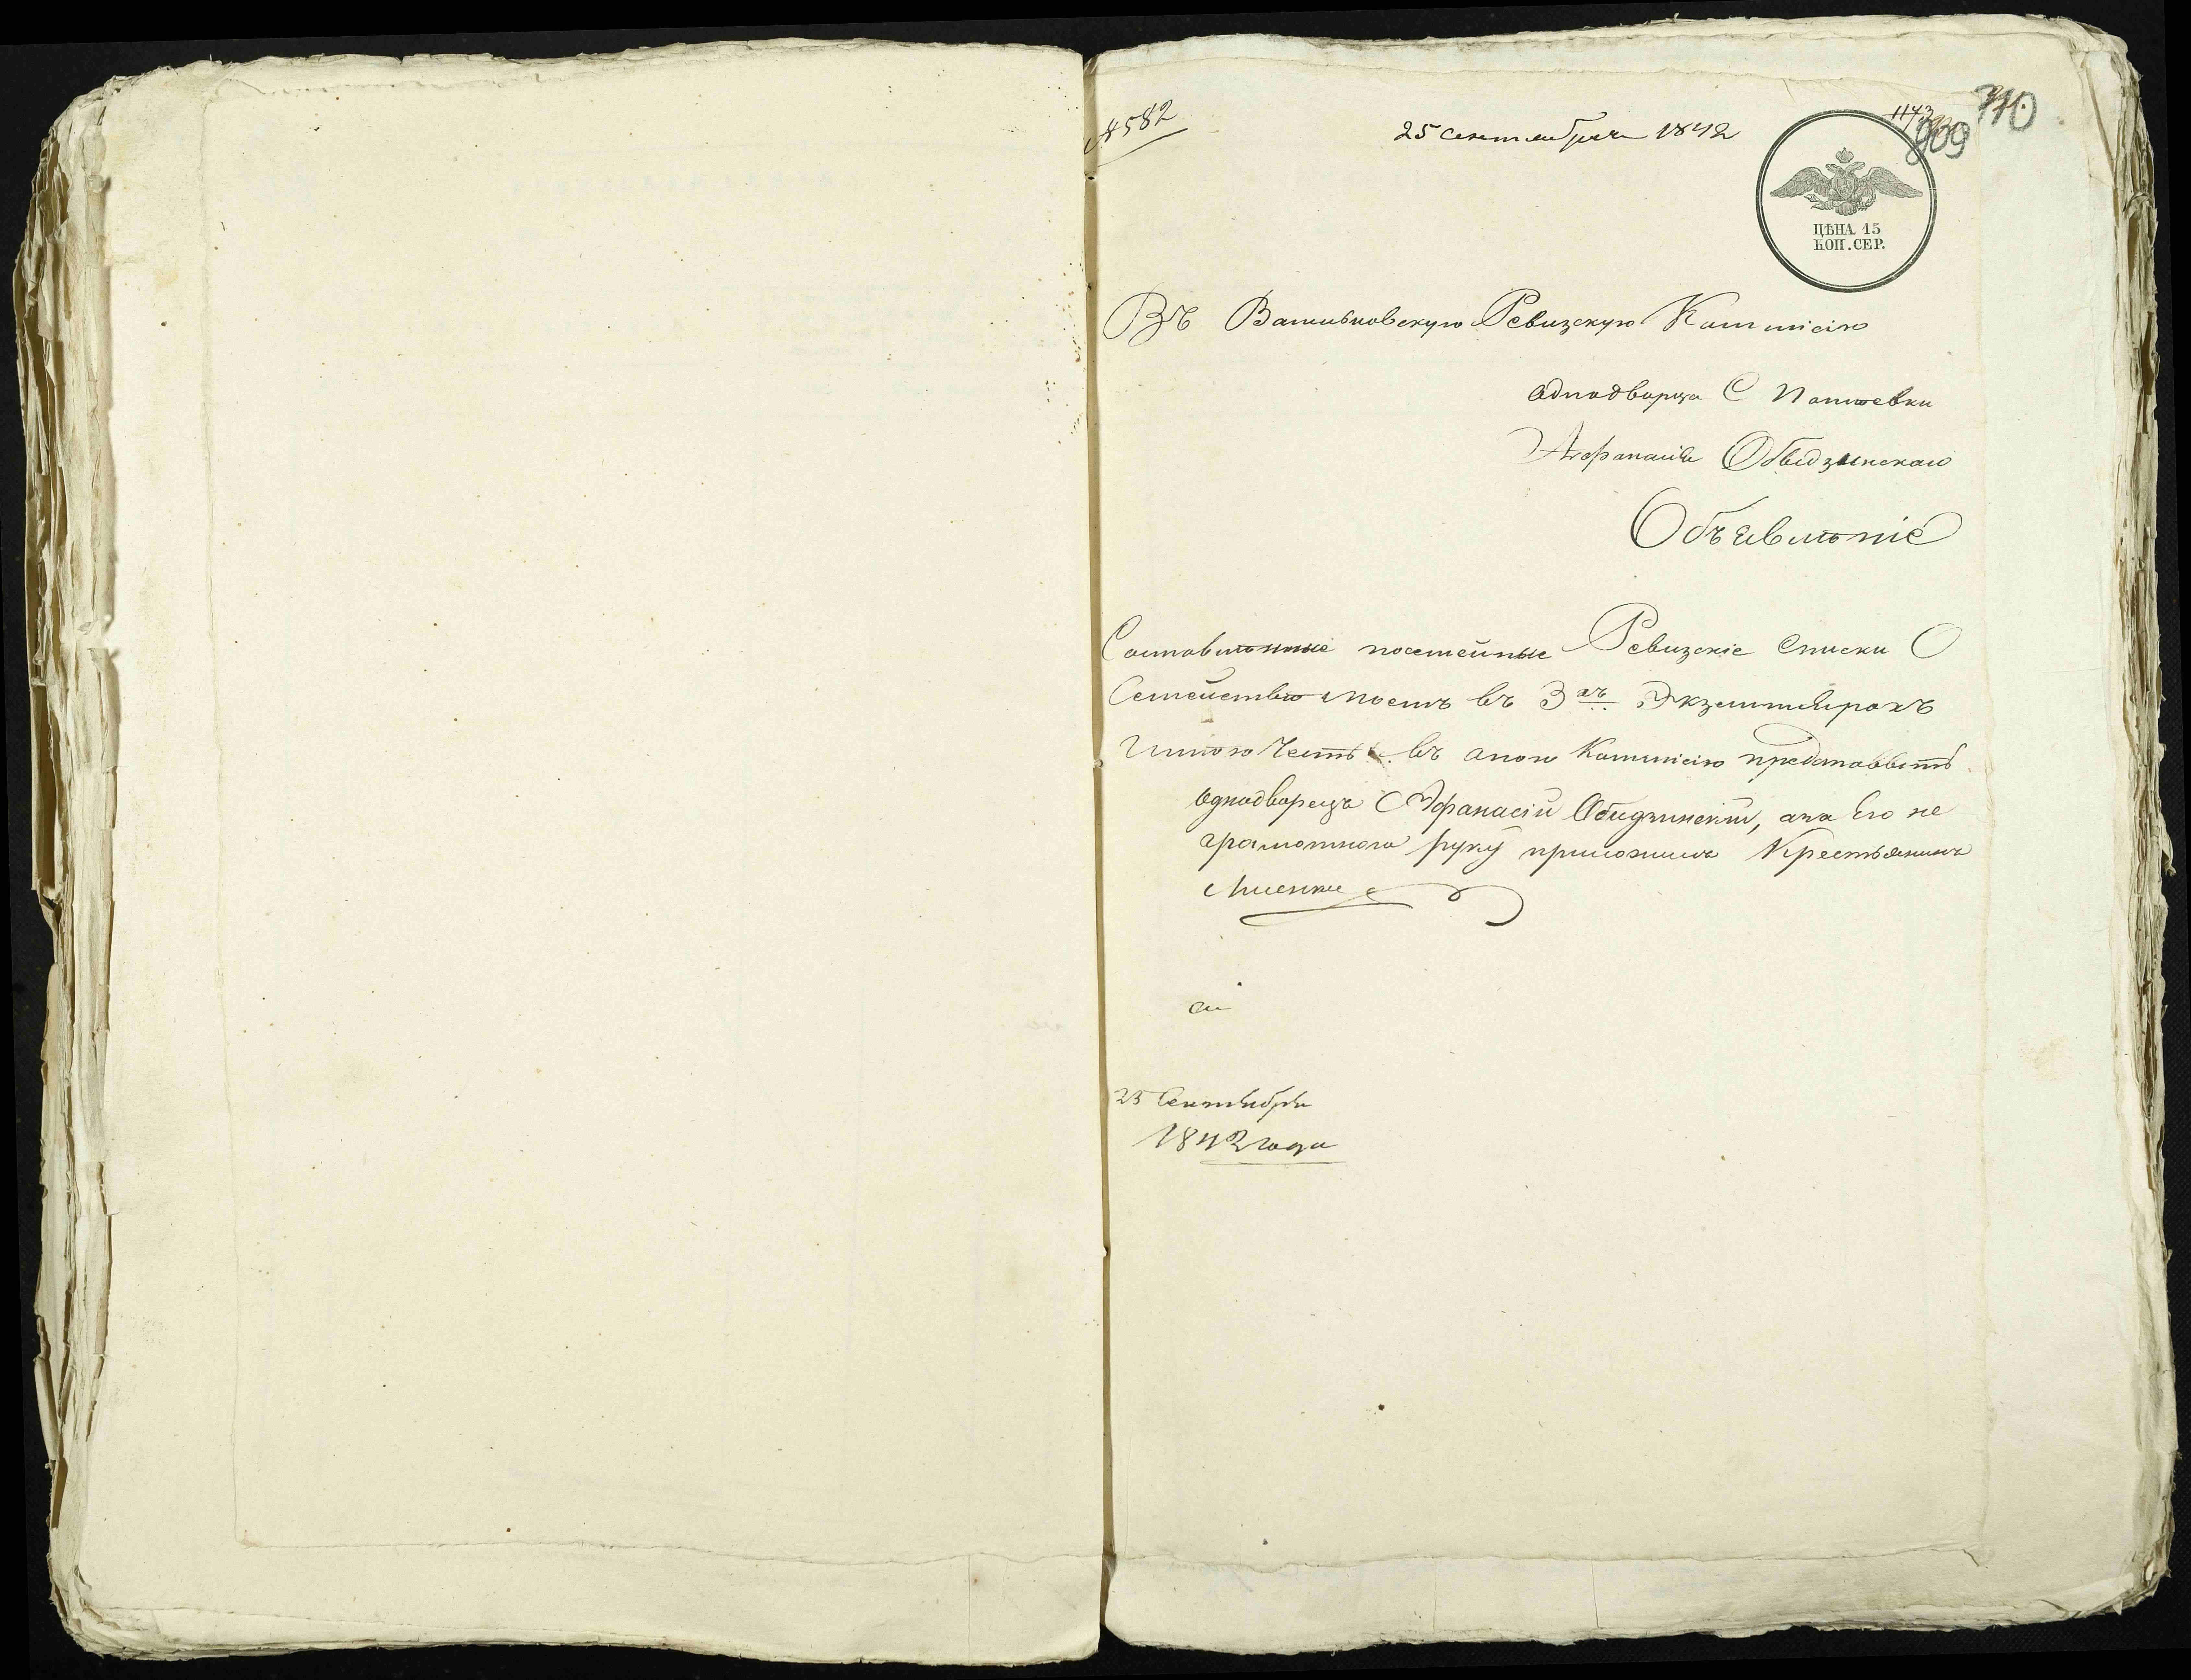 № 582
25 сентября 1842
1143
909
ЦѢНА 15
КОП. СЕР.
Въ Васильковскую Ревизскую Коммисію
однодворца С
Афанасія Обидзинскаго
Объявленіе
Составленные посемейные Ревизскіе списки О
Семействѣ моемъ въ 3хъ Экземплярахъ
имѣю Честь въ оною Коммисію представить
однодворецъ Афанасій Обидзинскій, а за Его не
грамотного руку приложилъ Крестьянинъ
25 Сентября
1842 года